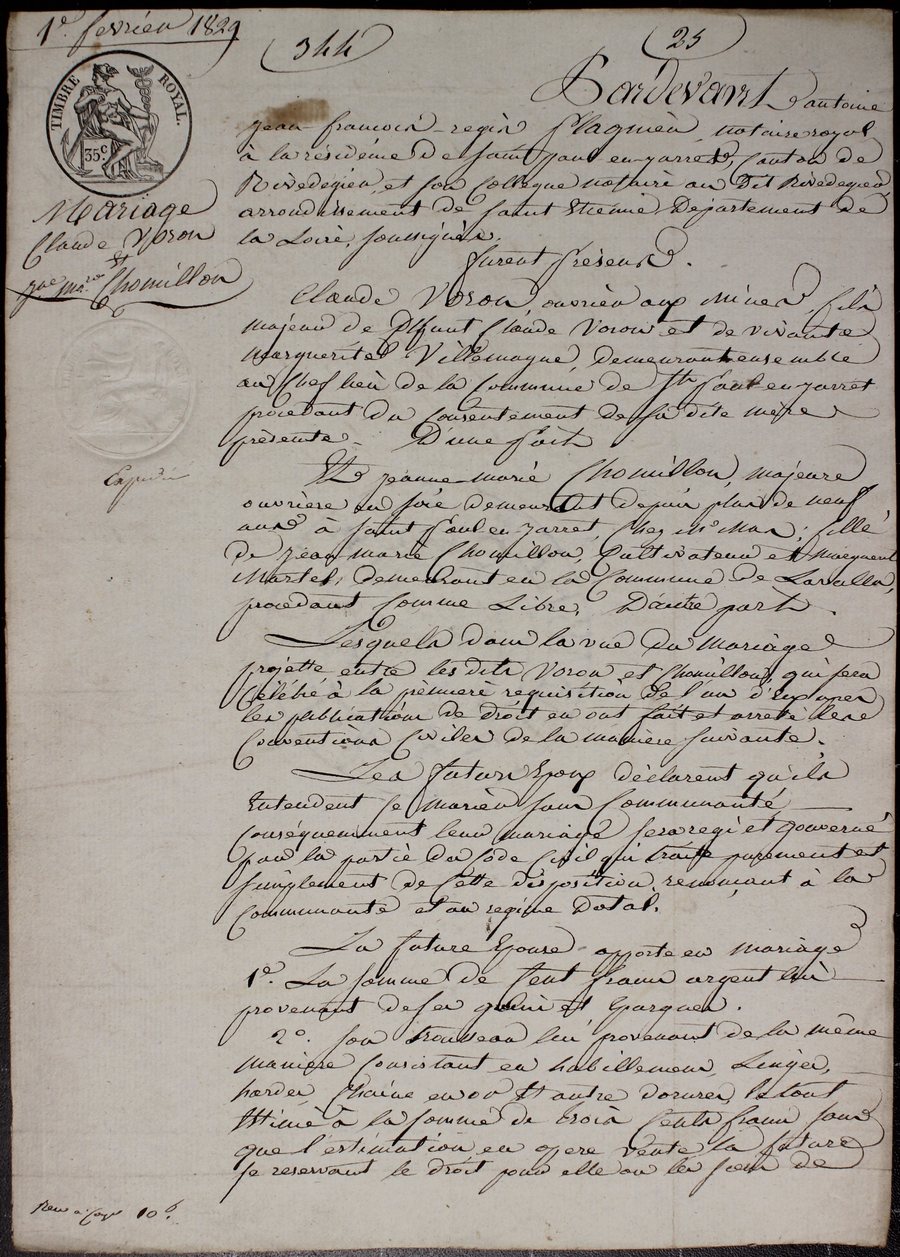 1er fevrier 1829
344
25
TIMBRE ROYAL.
35c.
Mariage
Claude Voron
et
jne marie Chomillon
Expédié
Pardevant Antoine
jean francois-regis flagnier notaire royal
à la résidence de saint paul en-jarret, canton de
Rivedegier, et son collegue notaire au dit Rivedegier
arrondissement de saint Etienne Departement de
la Loire, soussignés.
furent présens.
Claude Voron ouvrier aux mines, fils
majeur de Defunt Claude Voron et de vivante
marguerite Villemagne, demeurant ensemble
au Chef lieu de la Commune de St Paul en-jarret
procédant du Consentement de sa dite mère
présente. D'une part
Et jeanne-marie Chomillon, majeure
ouvrière en soie demeurant depuis plus de neuf
ans à saint Paul en jarret, Chez Mr , fille
de jean marie Chomillon, Cultivateur et marguerite
Martel, demeurant en la Commune de Lavalla,
procédant Comme Libre, D'autre part.
Lesquels dans la vue du mariage
projetté entre les dits Voron et Chomillon, qui sera
célébré à la première requisition de l'un d'eux après
les publications de droit en ont fait et arreté les
Conventions Civiles de la manière suivante.
Les futurs Epoux déclarent qu'ils
Entendent se marier sans Communauté
Conséquemment leur mariage sera regi et gouverné
par la partie du Code Civil qui traite purement et
simplement de Cette disposition, renonçant à la
Communauté et au regime Dotal.
La future Epouse apporte en mariage
1°. La somme de Cent francs argent lui
provenant de ses gains et Epargnes.
2°. son trousseau lui provenant de la même
manière Consistant en habillemens, Linges,
hardes Chaine en or Et autres dorures, le tout
Estimé à la somme de trois Cents francs sans
que l'estimation en opere vente la future
se reservant le droit pour elle ou les siens de
10 f.